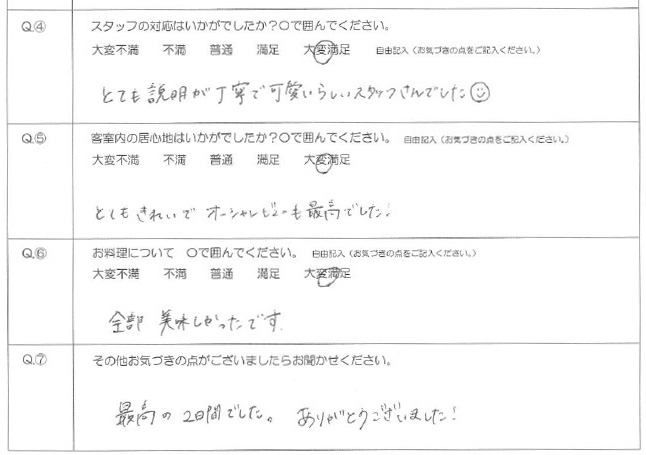 Q.④ スタッフの対応はいかがでしたか？○で囲んでください。
大変不満 不満 普通 満足 大変満足 自由記入（お気づきの点をご記入ください。）
とても説明が丁寧で可愛いらしいスタッフさんでした☺
Q.⑤ 客室内の居心地はいかがでしたか？○で囲んでください。 自由記入（お気づきの点をご記入ください。）
大変不満 不満 普通 満足 大変満足
とてもきれいで オーシャンビューも最高でした！
Q.⑥ お料理について ○で囲んでください。 自由記入（お気づきの点をご記入ください。）
大変不満 不満 普通 満足 大変満足
全部 美味しかったです。
Q.⑦ その他お気づきの点がございましたらお聞かせください。
最高の 2日間でした。 ありがとうございました！